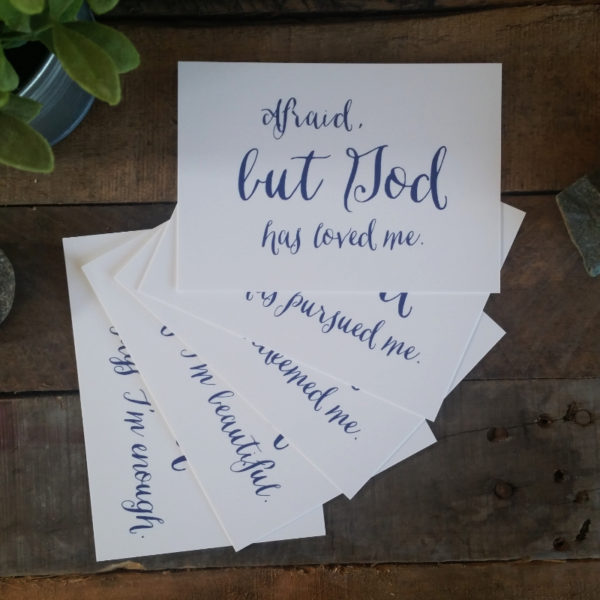 Afraid,
but God
has loved me.
pursued me.
me.
I'm beautiful.
I'm enough.